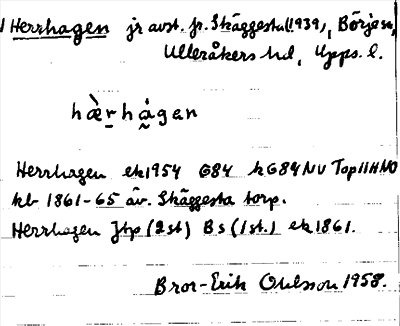 Herrhagen jr avst. fr. Skäggesta (1939), Börje sn,
Ulleråkers hd, Upps. l.
hæ̀r̠há̰gen
Herrhagen ek 1954 G84 k G84 NV Top 11H NO
kb 1861-65 äv. Skäggesta torp.
Herrhagen Jtp (2st) Bs (1st.) ek 1861.
Bror-Erik Ohlsson 1958.